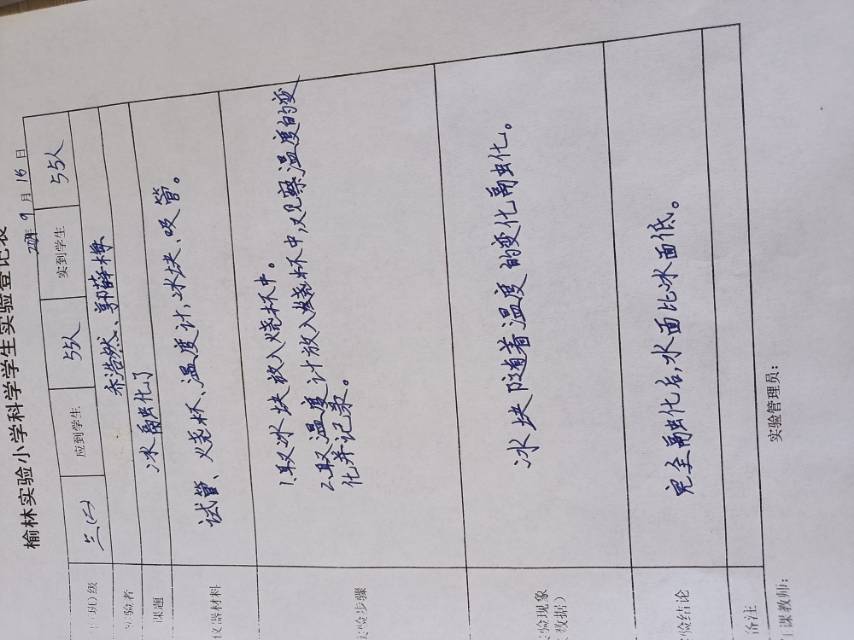 榆林实验小学科学学生实验登记表
9月16日
年(班)级 三(二) 应到学生 55人 实到学生 55人
实验者 乔浩然、郭薛梅
课题 冰融化了
仪器材料 试管、烧杯、温度计,冰块、吸管。
实验步骤
1.取冰块放入烧杯中。
2.取温度计放入烧杯中,观察温度的变
化并记录。
实验现象
(数据)
冰块随着温度的变化融化。
实验结论
完全融化后,水面比冰面低。
备注
课教师: 实验管理员: